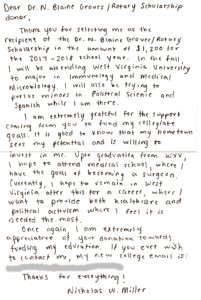 Dear Dr. N. Blaine Groves/Rotary Scholarship
donor,
Thank you for selecting me as the
recipient of the Dr. N. Blaine Grover/Rotary
Scholarship in the amount of $1,200 for
the 2017-2018 school year. In the fall,
I will be attending West Virginia University
to major in Immunology and Medical
Microbiology. I will also be trying to
pursue minors in Political Science and
Spanish while I am there.
I am extremely grateful for the support
coming from you to fund my college
goals. It is good to know that my hometown
sees my potential and is willing to
invest in me. Upon graduation from WVU,
I hope to attend medical school, where I
have the goal of becoming a surgeon.
Currently, I hope to remain in West
Virginia after this for a career, where I
want to provide both healthcare and
political activism where I feel it is
needed the most.
Once again, I am extremely
appreciative of your donation towards
funding my education. If you ever wish
to contact me, my new college email is:
Thanks for everything!
Nicholas W. Miller